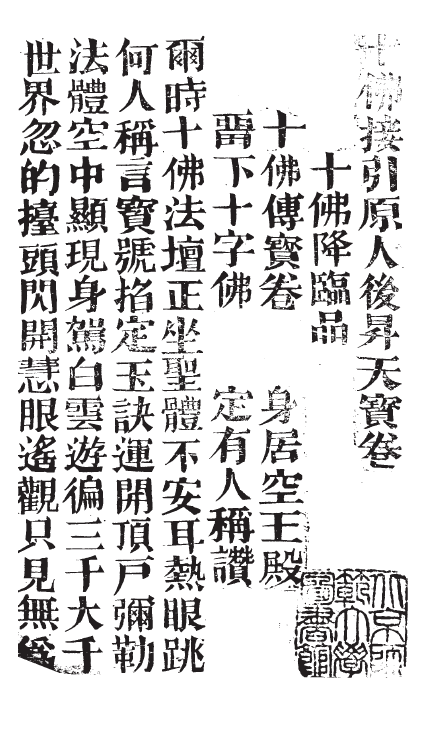 十佛接引原人後昇天寶卷
十佛降臨品
十佛傳寶卷 身居空王殿
畱下十字佛 定有人稱讚
爾時十佛法壇正坐聖體不安耳熱眼跳
何人稱言寶號掐定玉訣運開頂戶彌勒
法體空中顯現身駕白雲遊徧三千大千
世界忽的擡頭閃開慧眼遙觀只見無爲
北京師範大學圖書館